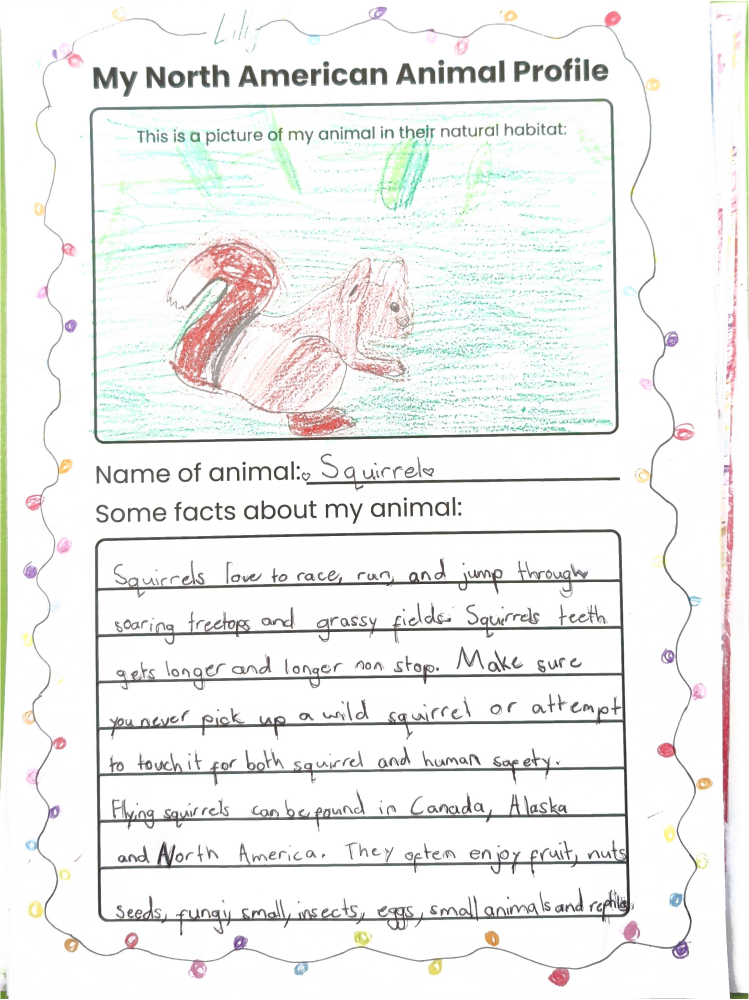 Lily
My North American Animal Profile
This is a picture of my animal in their natural habitat:
Name of animal: Squirrel
Some facts about my animal:
Squirrels love to race, run, and jump through
soaring treetops and grassy fields. Squirrels teeth
gets longer and longer non stop. Make sure
you never pick up a wild squirrel or attempt
to touch it for both squirrel and human safety.
Flying squirrels can be found in Canada, Alaska
and North America. They oftem enjoy fruit, nuts
seeds, fungi, small, insects, eggs, small animals and reptiles.